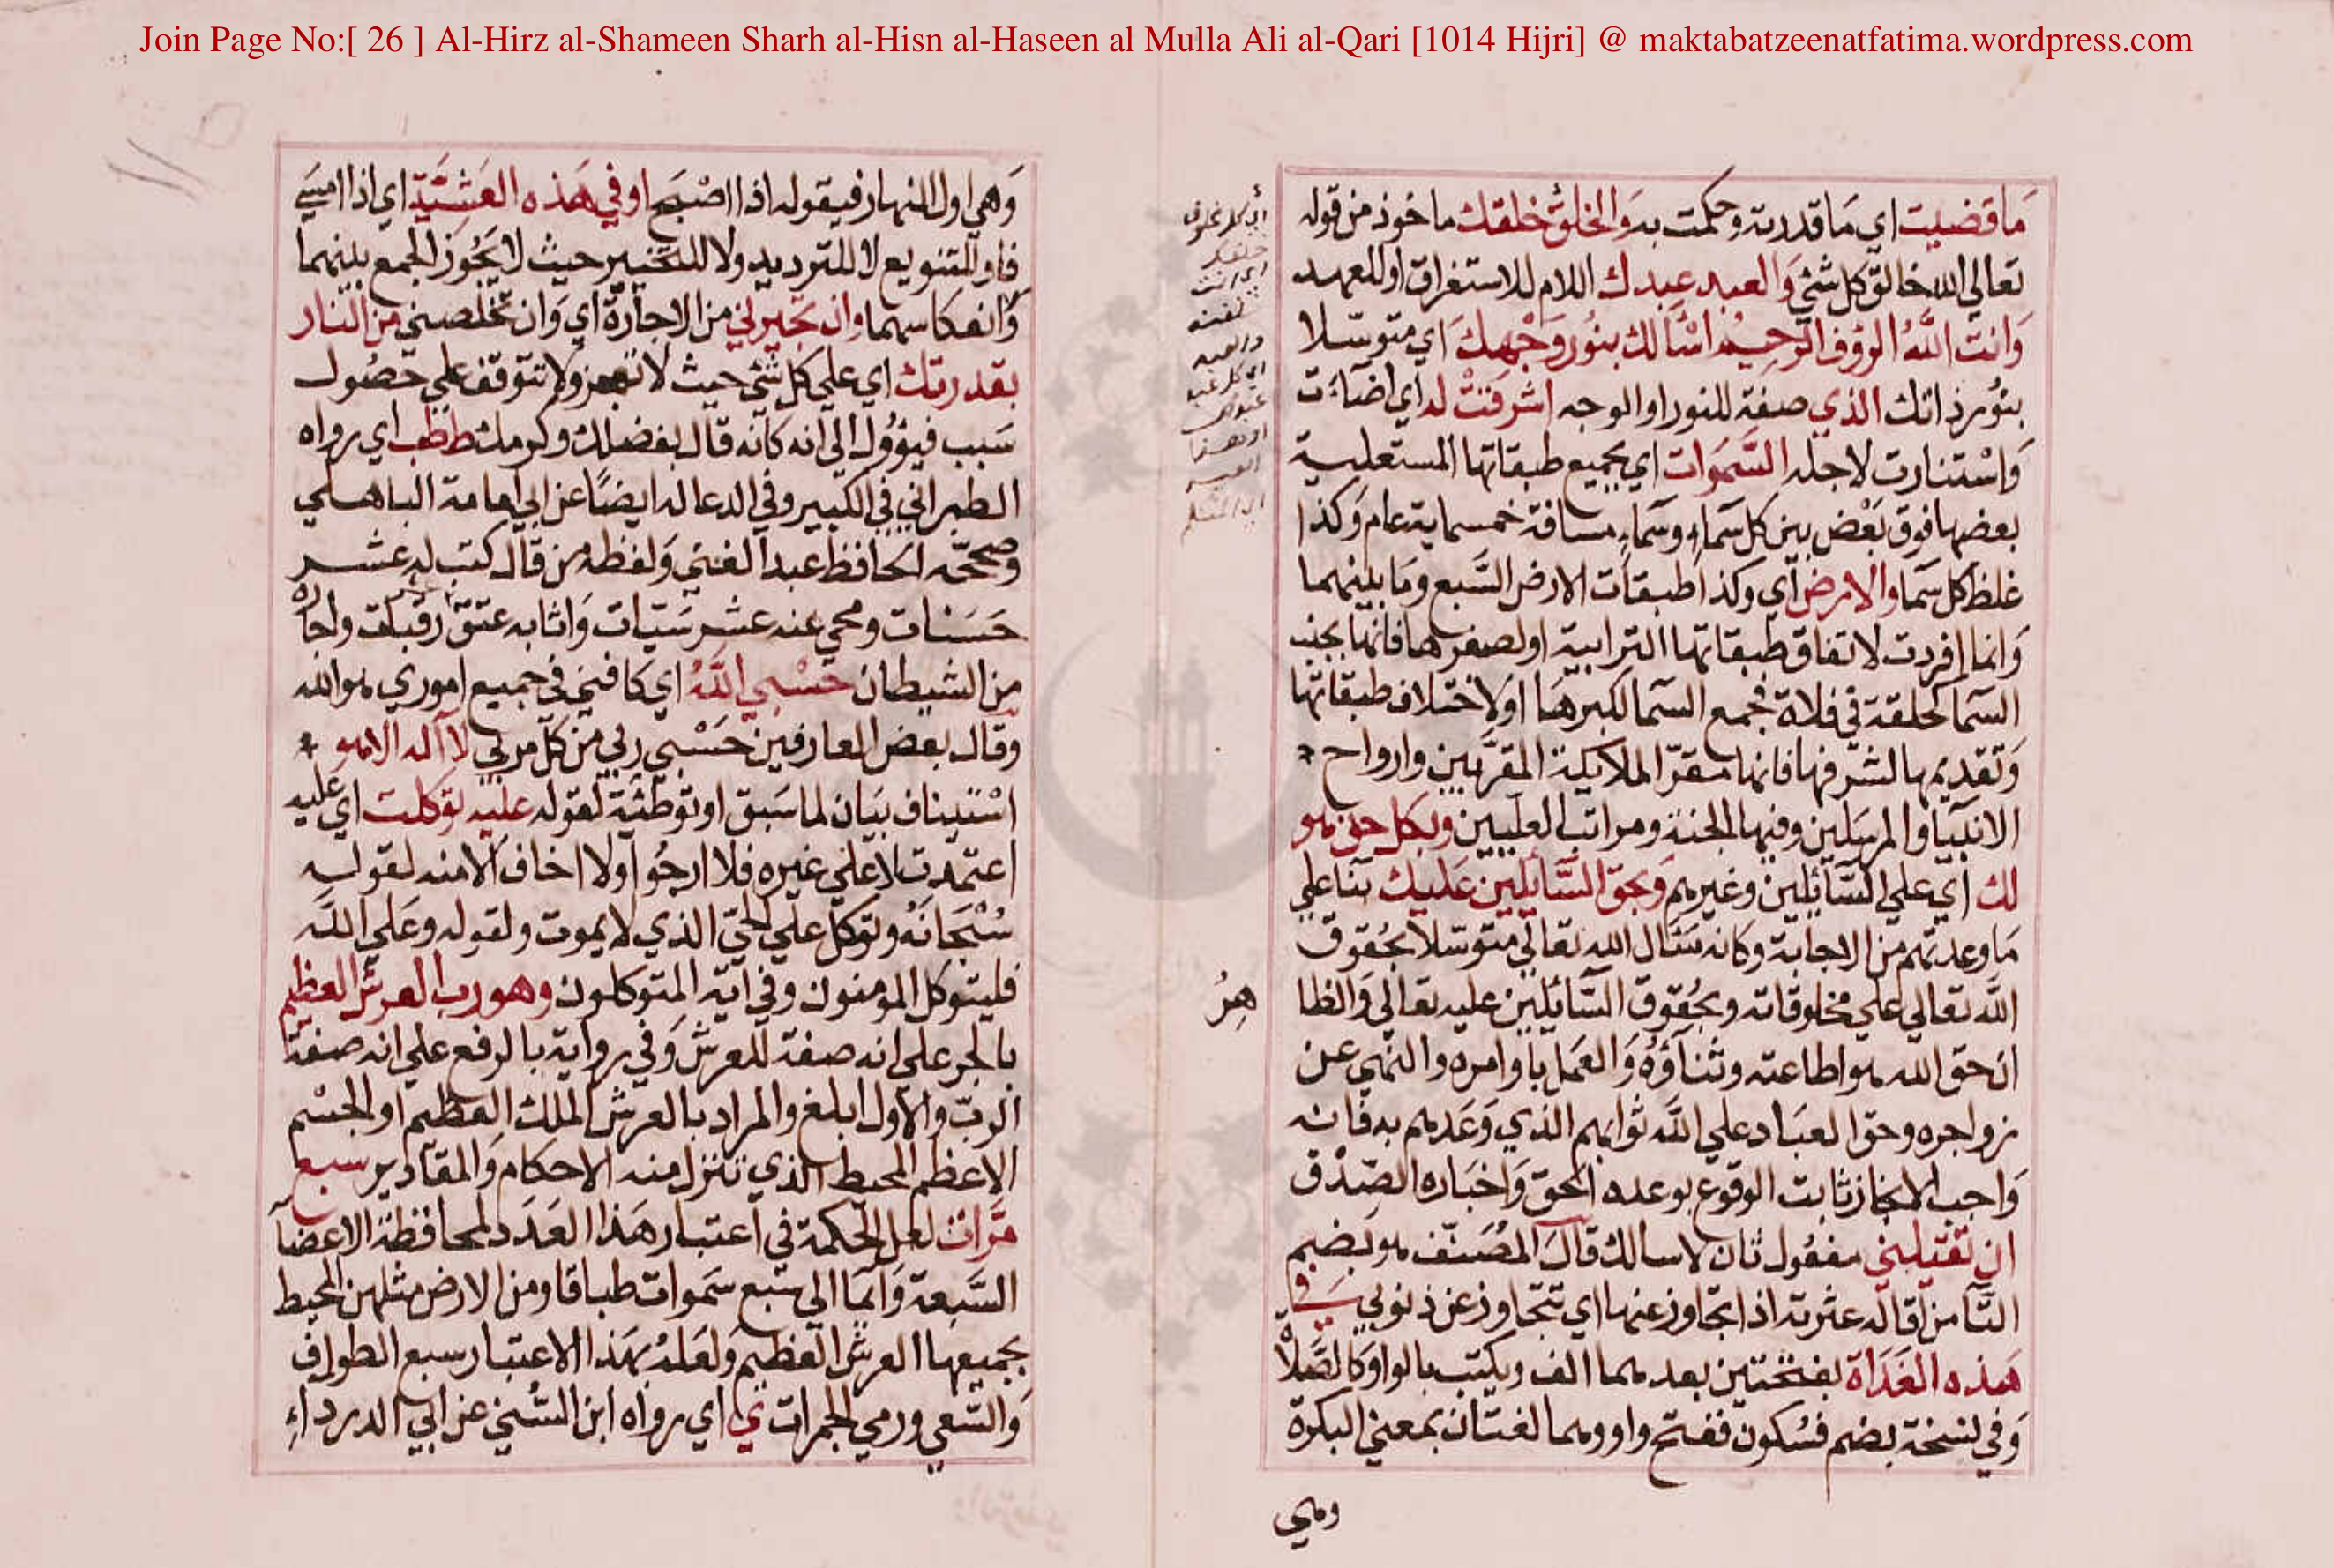 Join Page No:[ 26 ] Al-Hirz al-Shameen Sharh al-Hisn al-Haseen al Mulla Ali al-Qari [1014 Hijri] @ maktabatzeenatfatima.wordpress.com
ما قضيت اي ما قدرته وحكمت به والخلق خلقك ماخوذ من قوله
تعالي الله خالق كل شئ والعبد عبدك اللام للاستغراق او للعهد
وانت الله الرؤف الرحيم اسألك بنور وجهك اي متوسلا
بنور ذاتك الذي صفة للنور او الوجه اشرقت له اي اضاءت
واستنارت لاجله السموات اي بجميع طبقاتها المستعلية
بعضها فوق بعض بين كل سماء وسماء مسافة خمسماية عام وكذا
غلظ كل سما والارض اي وكذا طبقات الارض السبع وما بينهما
وانما افردت لاتفاق طبقاتها الترابية او لصغرها فانها بجنب
السما كحلقة في فلاة فجمع السما لكبرها او لاختلاف طبقاتها
وتقديمها لشرفها فانها مقر الملايكة المقربين وارواح
الانبيا والمرسلين وفيها الجنة ومراتب العليين وبكل حق هو
لك اي علي السآئلين وغيرهم وبحق السآئلين عليك بنا علي
ما وعدتهم من الاجابة وكانه سئال الله تعالي متوسلا بحقوق
الله تعالي علي مخلوقاته وبحقوق السآئلين عليه تعالي والظا
هر
ان حق الله هو اطاعته وثنآؤه والعمل باوامره والنهي عن
زواجره وحق العباد علي الله ثوابهم الذي وعدهم به فانه
واجب الانجاز ثابت الوقوع بوعده الحق واخباره الصدق
ان تقيلني مفعول ثان لاسالك قال المصنف هو بضم
التآ من اقاله عثرته اذا تجاوز عنها اي تتجاوز عن ذنوبي في
هذه الغداة بفتحتين بعدهما الف ويكتب بالواو كالصلاة
وفي نسخة بضم فسكون ففتح واو وهما لغتان بمعني البكرة
وهي
وهي اول النهار فيقوله اذا اصبح او في هذه العشية اي اذا امسي
فاو للتنويع لا للترديد ولا للتخيير حيث لا يجوز الجمع بينهما
وانعكاسهما وان تجيرني من الاجارة اي وان تخلصني من النار
بقدرتك اي علي كل شئ حيث لا تعجز ولا تتوقف علي حصول
سبب فيؤول الي انه كانه قال بفضلك وكرمك ط طب اي رواه
الطبراني في الكبير وفي الدعا له ايضا عن ابي امامة الباهلي
وصححه الحافظ عبد الغني ولفظه من قال كتب له عشر
حسنات ومحي عنه عشر سيئات واثابه عتق رقبات واجاره
من الشيطان حسبي الله اي كافني في جميع اموري هو الله
وقال بعض العارفين حسبي ربي من كل مربي لا اله الا هو
استيناف بيان لما سبق او توطئة لقوله عليه توكلت اي عليه
اعتمدت لا علي غيره فلا ارجوا ولا اخاف الا منه لقوله
سبحانه وتوكل علي الحي الذي لا يموت ولقوله وعلي الله
فليتوكل المومنون وفي اية المتوكلون وهو رب العرش العظيم
بالجر علي انه صفة للعرش وفي رواية بالرفع علي انه صفة
الرب والاول ابلغ والمراد بالعرش الملك العظيم او الجسم
الاعظم المحيط الذي تنزل منه الاحكام والمقادير سبع
مرات لعل الحكمة في اعتبار هذا العدد لمحافظة الاعضآ
السبعة وايما الي سبع سموات طباقا ومن الارض مثلهن المحيط
بجميعها العرش العظيم ولعله بهذا الاعتبار سبع الطواف
والسعي ورمي الجمرات ي اي رواه ابن السني عن ابي الدرداء